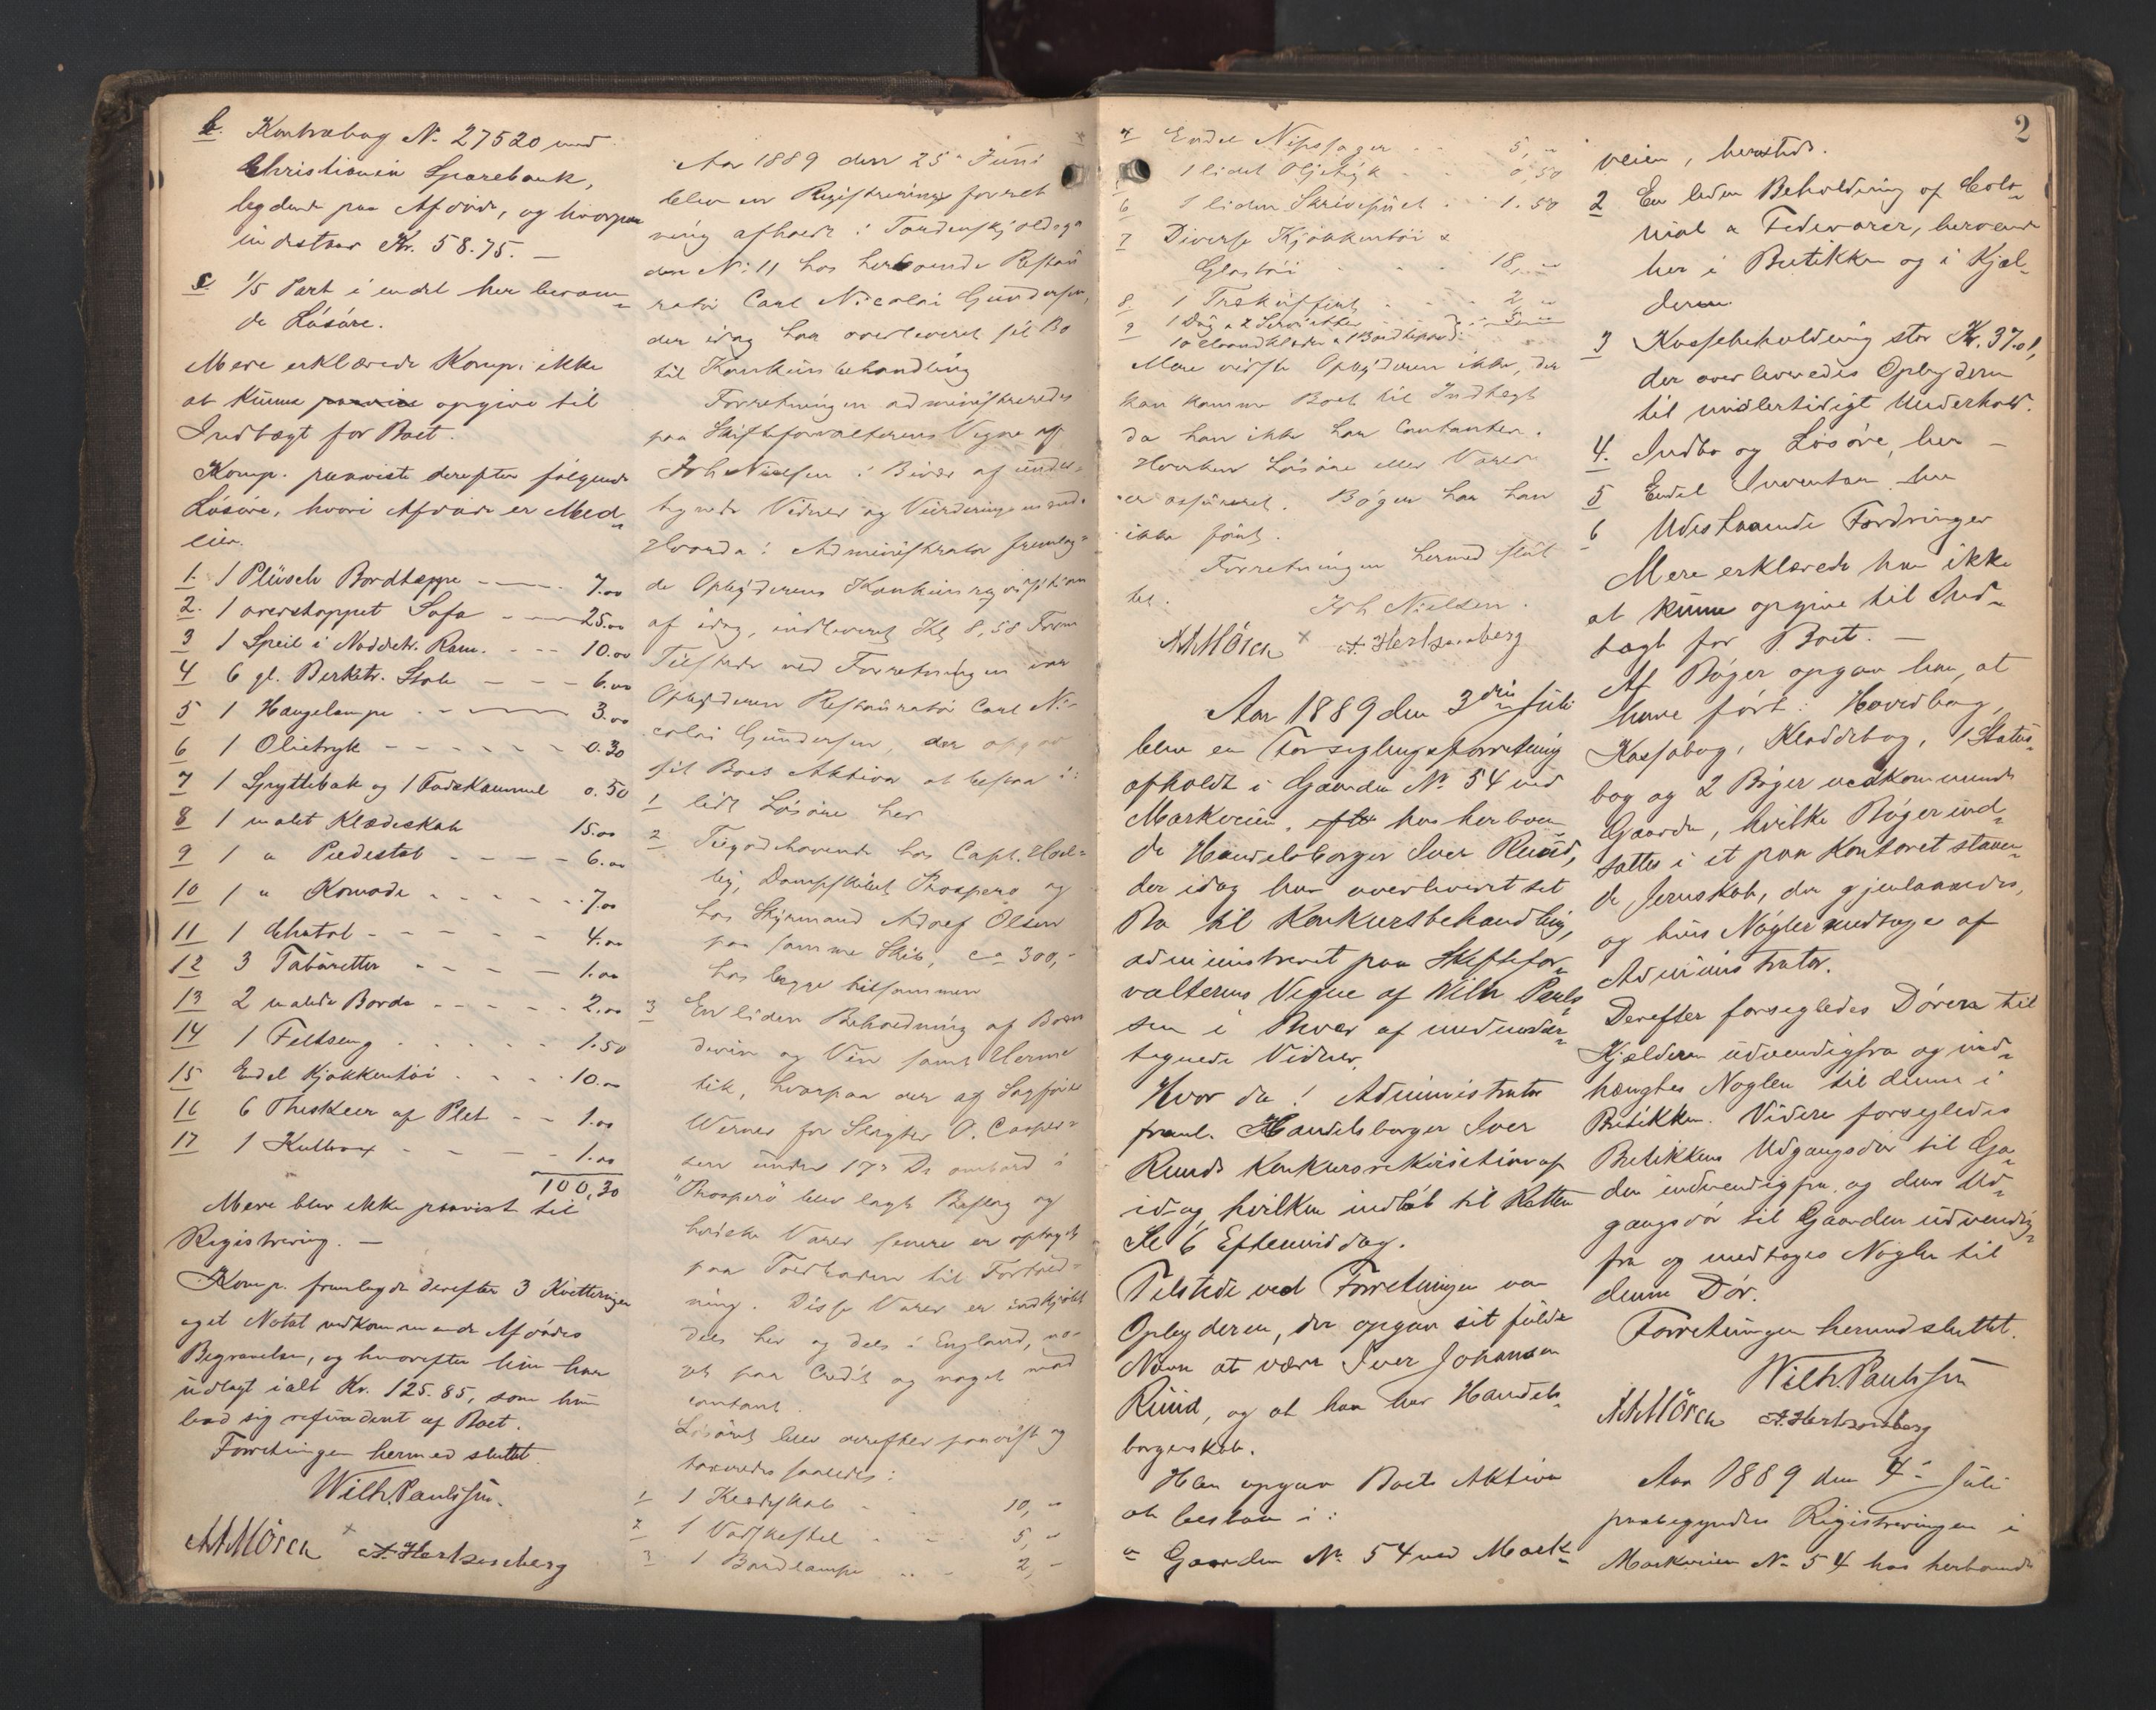 b. Kontrabog N. 27520 med
Christiania Sparebank,
lydende paa Afdøde, og hvorpaa
indestaar Kr. 58.75. —
c. 1/5 Part i endel her beroen-
de Løsøre.
Mere erklærede Komp. ikke
at kunne opgive til
Indtægt for Boet.
Komp. paaviste derefter følgende
Løsøre, hvori Afdøde er Med-
eier.
1. 1 Plüsch Bordtæppe — 7.00
2. 1 overstoppet Sofa — 25.00
3 1 Speil i Nøddetr. Ram. - - 10.00
4 6 gl. Birketr. Stole — - - 6.00
5 1 Hængelampe — 3.00
6 1 Olietryk - - - - - - 0.30
7 1 Spyttebak og 1 Fodskammel 0.50
8 1 malet Klædeskab 15.00
9 1 " Piedestal - - - - 6.00
10 1 " Komode - - - - - 7.00
11 1 Chatol - - - - - 4.00
12 3 Tabüretter - - - - 1.00
13 2 malede Borde - - - - - 2.00
14 1 Feltseng . . . . . . 1.50
15 Endel Kjøkkentøi . . . . 10.00
16 6 Theskeer af Plet - - 1.00
17 1 - - - - 1.00
100,30
Mere blev ikke paavist til
Registrering. —
Komp. fremlagde derefter 3 Kvitteringer
og et Notat vedkommende Afdødes
Begravelse, og hvorefter hun har
udlagt ialt Kr. 125.85, som hun
bad sig refunderet af Boet.
Forretningen hermed sluttet.
Wilh. Paulssen.
A Mörch A. Hertzenberg
Aar 1889 den 25. Juni
blev en Registrerings forret
ning afholdt i Tordenskjoldsga
den N: 11 hos herboende Restau
ratør Carl Nicolai Gundersen,
der idag har overleveret sit Bo
til Konkursbehandling
Forretningen administreredes
paa Skifteforvalterens Vegne af
Joh Nielsen i Bivær af under-
tegnede Vidner og Vurderingsmænd.
Hvorda: Administrator fremlag-
de Opbyderens Konkursreqvisition
af idag, indleveret Kl 8,58 Form
Tilstede ved Forretningen var
Opbyderen Restauratør Carl Ni-
colai Gundersen, der opgav
sit Boes Aktiva at bestaa i:
1 lidt Løsøre her
2 Tilgodehavende hos Capt.
Dampskibet Prospero og
hos Styrmand Adolf Olsen
paa samme Skib, ca 300,-
hos begge tilsammen
3 En liden Beholdning af
og Vin samt Herme
tik, hvorpaa der af Sagfører
Werner for Slagter O. Casper-
sen under 17. Ds ombord i
"Prospero" blev lagt Beslag og
hvilke Varer senere er oplagt
paa Toldboden til Fortold-
ning. Disse Varer er indkjøbt
dels her og dels i England, no-
get paa Credit og noget mod
contant.
Løsøret blev derefter paavist og
taxeredes saaledes:
1 1 Klædeskab - - 10, "
2 1 - - 5, "
3 1 Bordlampe .. - 2, -
2
4 Endel Nipssager . . 5, "
5 1 lidet Oljetryk - - 0,50
6 1 liden Skrivepult . . . 1.50
7 Diverse Kjøkkentøi &
Glastøi - - 18, "
8. 1 Trækuffert . . . 2, "
9 1 Dug & 2 Servietter
10
Mere vidste Opbyderen ikke, der
kan komme Boet til Indtægt
da han ikke har Contanter.
Hverken Løsøre eller Varer
er assureret. Bøger har han
ikke ført.
Forretningen hermed slut
tet.
Joh Nielsen.
A Mörch A. Hertzenberg
Aar 1889 den 3die Juli
blev en Forseglingsforretning
afholdt i Gaarden No 54 ved
Markveien, hos herboen-
de Handelsborger Iver Ruud,
der idag har overleveret sit
Bo til Konkursbehandling,
administreret paa Skiftefor-
valterens Vegne af Wilh Pauls-
sen i Bivær af medunder-
tegnede Vidner.
Hvor da! Administrator
freml. Handelsborger Iver
Ruuds Konkursrekvisition af
idag hvilken indløb til Retten
Kl 6 Eftermiddag.
Tilstede ved Forretningen var
Opbyderen, der opgav sit fulde
Navn at være Iver Johansen
Ruud, og at han har Handels-
borgerskab.
Han opgav Boets Aktiva
at bestaa i:
Gaarden No. 54 ved Mark-
veien, hersteds.
2 En liden Beholdning af Colo-
nial & Fedevarer, beroende
her i Butikken og i Kjæl-
deren.
3 Kassebeholdning stor Kr. 37.01,
der overleveredes Opbyderen
til midlertidigt Underhold.
4. Indbo og Løsøre, her —
5 Endel Inventar her
6 Udestaaende Fordringer
Mere erklærede han ikke
at kunne opgive til Ind-
tægt for Boet. —
Af Bøger opgav han, at
have ført: Hovedbog,
Kassabog, Kladdebog, 1 Status-
bog og 2 Bøger vedkommende
Gaarden, hvilke Bøger ind-
sattes i et paa Kontoret staaen-
de Jernskab, der gjenlaasedes,
og hvis Nøgler medtoges af
Administrator.
Derefter forsegledes Døren til
Kjælderen udvendigfra og ind-
hængtes Nøglen til denne i
Butikken. Videre forsegledes
Butikkens Udgangsdør til Ga-
den indvendig fra og dens Ud-
gangsdør til Gaarden udvendig-
fra og medtoges Nøglen til
denne Dør.
Forretningen hermed sluttet.
Wilh. Paulssen
A Mörch A. Hertzenberg
Aar 1889 den 4. Juli
paabegyndtes Registreringen i
Markveien No 54 hos herboende